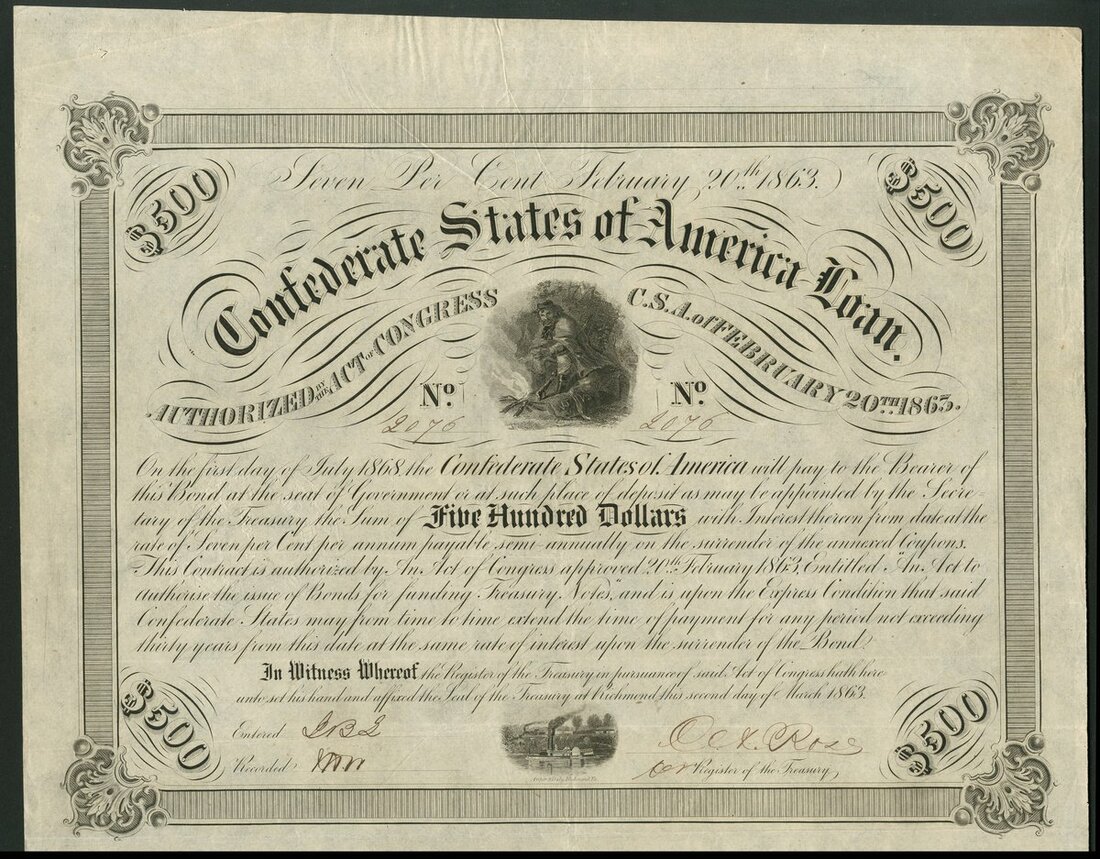 Seven Per Cent February 20th 1863.
$500
$500
Confederate States of America Loan.
AUTHORIZED BY THE ACT OF CONGRESS
C.S.A. of FEBRUARY 20TH 1863.
No.
No.
2076
2076
On the first day of July 1868 the Confederate States of America will pay to the Bearer of
this Bond at the seat of Government or at such place of deposit as may be appointed by the Secre-
tary of the Treasury the Sum of Five Hundred Dollars with Interest thereon from date at the
rate of Seven per Cent per annum payable semi-annually on the surrender of the annexed Coupons.
This Contract is authorized by An Act of Congress approved 20th February 1863, Entitled "An Act to
authorise the issue of Bonds for funding Treasury Notes", and is upon the Express Condition that said
Confederate States may from time to time extend the time of payment for any period not exceeding
thirty years from this date at the same rate of interest upon the surrender of the Bond.
In Witness Whereof the Register of the Treasury in pursuance of said Act of Congress hath here
unto set his hand and affixed the Seal of the Treasury at Richmond this second day of March 1863.
$500
$500
Entered
Rose
Recorded
Register of the Treasury